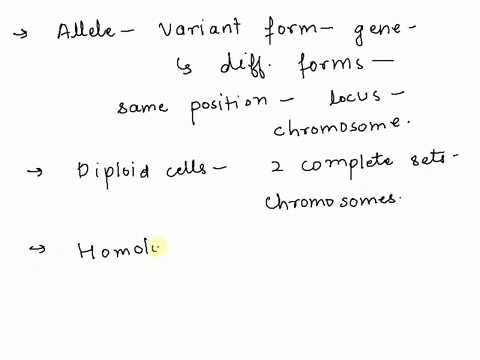 → Allele – Variant form – gene –
↳ diff. forms –
same position – locus –
chromosome.
→ Diploid cells – 2 complete sets –
chromosomes.
→ Homolo